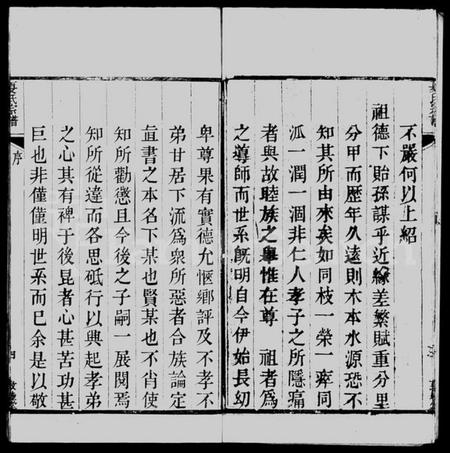 不嚴何以上紹
祖德下貽孫謀乎近緣差繁賦重分里
分甲而歷年久遠則木本水源恐不
知其所由來矣如同枝一榮一瘁同
泒一潤一涸非仁人孝子之所隱痛
者與故睦族之舉惟在尊 祖者為
之尊師而世系旣明自今伊始長幼
卑尊果有實德允愜鄉評及不孝不
弟甘居下流為衆所惡者合族論定
直書之本名下某也賢某也不肖使
知所勸懲且今後之子嗣一展閱焉
知所從違而各思砥行以興起孝弟
之心其有裨于後昆者心甚苦功甚
巨也非僅僅明世系而已余是以敬
氏宗譜
序
四